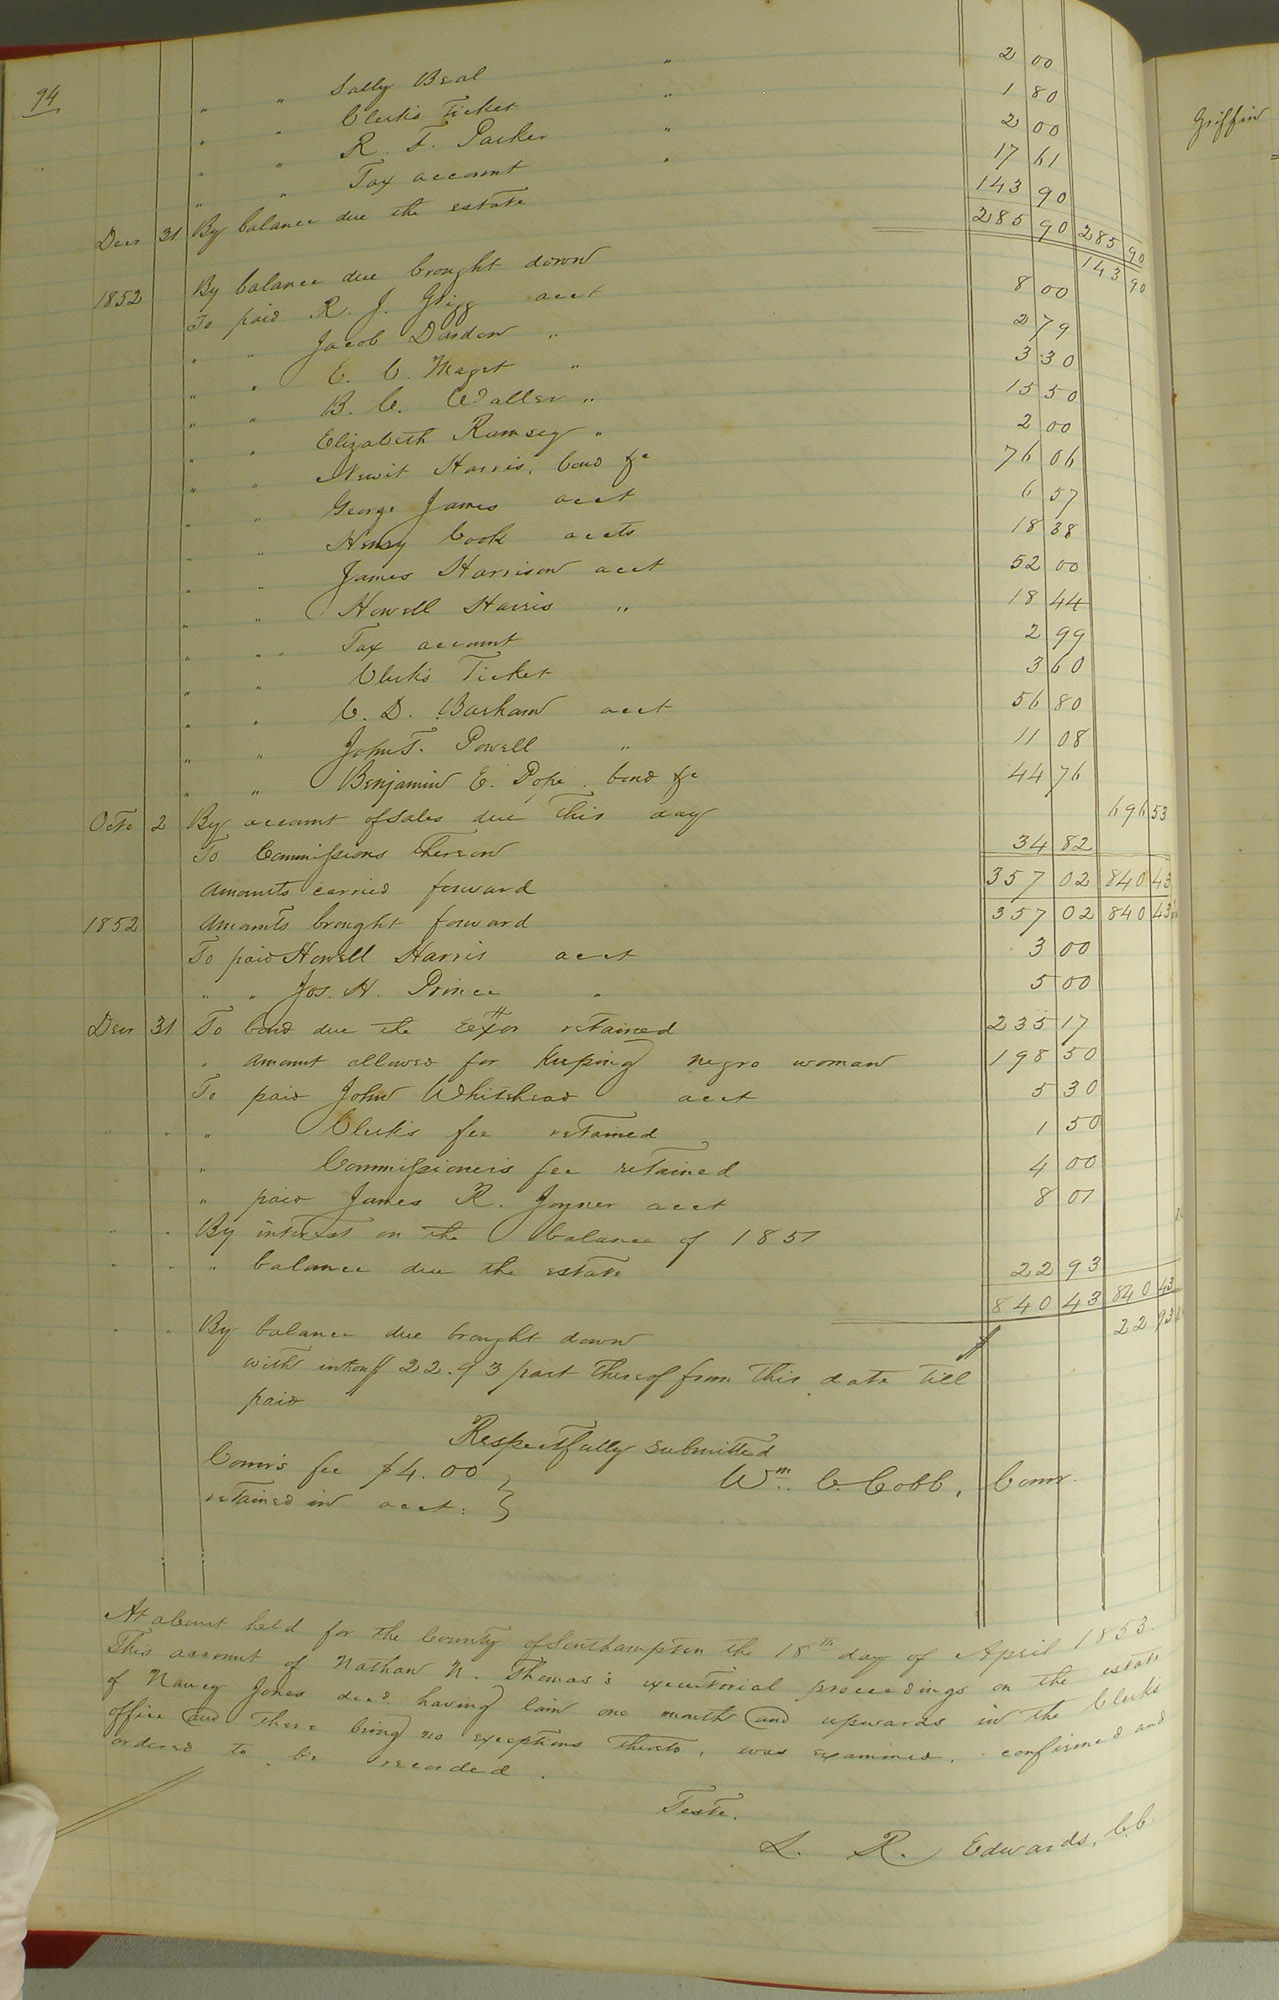 94
" " Sally Beal " 2 00
" " Clerk's Ticket " 1 80
" " R. T. Parker " 2 00
" " Tax account " 17 61
Decr 31 By balance due the estate 143 90
285 90 285 90
1852 By balance due brought down 143 90
To paid R. J. Grigg acct 8 00
" " Jacob Darden " 2 79
" " E. C. Maget " 3 30
" " B. C. Waller " 15 50
" " Elizabeth Ramsey " 2 00
" " Newit Harris, bond &c 76 06
" " George James acct 6 57
" " Henry Cook accts 18 38
" " James Harrison acct 52 00
" " Howell Harris " 18 44
" " Tax account 2 99
" " Clerk's Ticket 3 60
" " C. D. Barham acct 56 80
" " John T. Powell " 11 08
" " Benjamin E. Pope bond &c 44 76
Octo 2 By account of sales due this day 696 53
To Commissions thereon 34 82
Amounts carried forward 357 02 840 43
1852 Amounts brought forward 357 02 840 43
To paid Howell Harris acct 3 00
" " Jos. H. Prince " 5 00
Decr 31 To bond due the Extor retained 235 17
" amount allowed for keeping negro woman 198 50
To paid John Whitehead acct 5 30
" " " Clerk's fee retained 1 50
" Commissioner's fee retained 4 00
" paid James R. Joyner acct 8 01
" " By interest on the balance of 1851
" " " balance due the estate 22 93
840 43 840 43
" " By balance due brought down 22 93
with int on $22.93 part thereof from this date till
paid
Respectfully submitted
Comr's fee $4.00 } Wm. C. Cobb, Comr.
retained in acct. }
At a Court held for the County of Southampton the 18th day of April 1853.
This account of Nathan N. Thomas's executorial proceedings on the estate
of Nancy Jones decd. having lain one month and upwards in the Clerks
office and there being no exceptions thereto, was examined, confirmed and
ordered to be recorded.
Teste.
L. R. Edwards, C.C.
Griffin